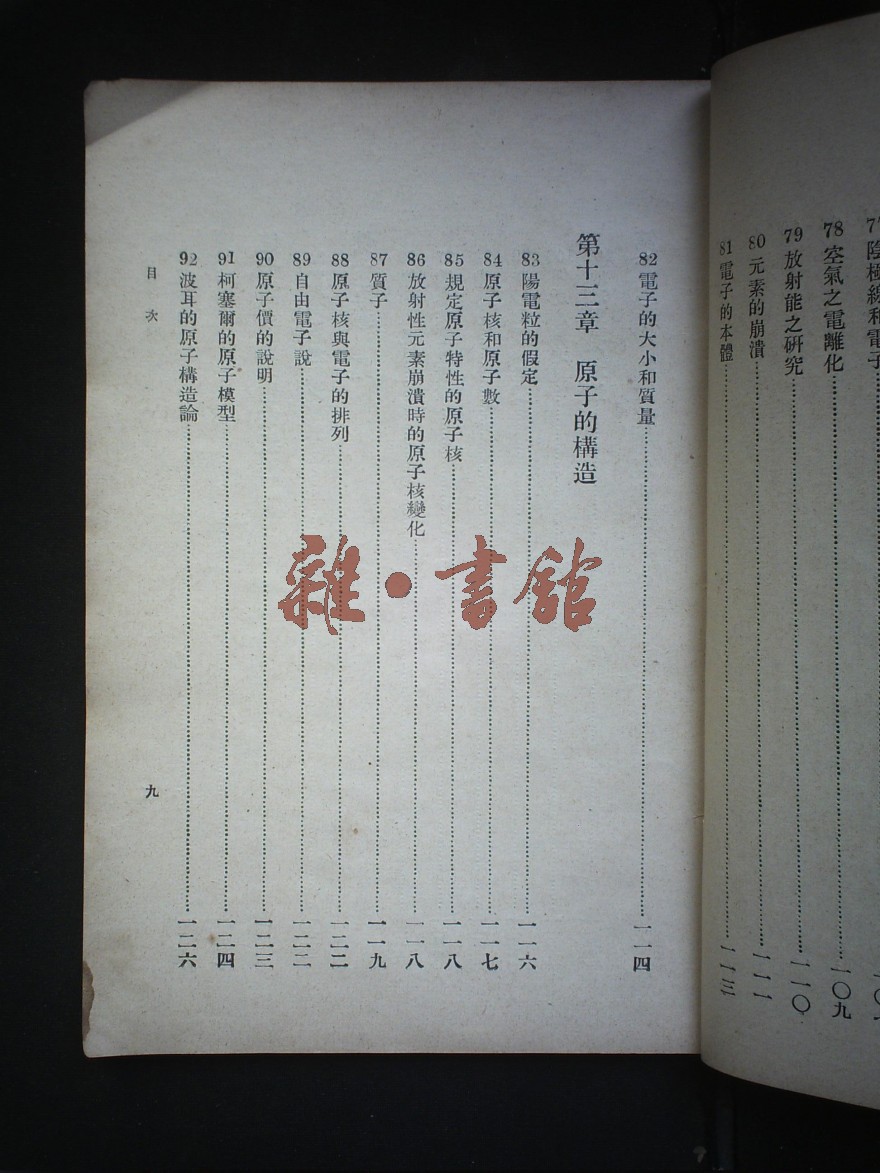 77 陰極線和電子
78 空氣之電離化……一〇九
79 放射能之硏究……一一〇
80 元素的崩潰……一一一
81 電子的本體……一一三
82 電子的大小和質量……一一四
第十三章 原子的構造
83 陽電粒的假定……一一六
84 原子核和原子數……一一七
85 規定原子特性的原子核……一一八
86 放射性元素崩潰時的原子核變化……一一八
87 質子……一一九
88 原子核與電子的排列……一二二
89 自由電子說……一二二
90 原子價的說明……一二三
91 柯塞爾的原子模型……一二四
92 波耳的原子構造論……一二六
目次
九
雜·書館